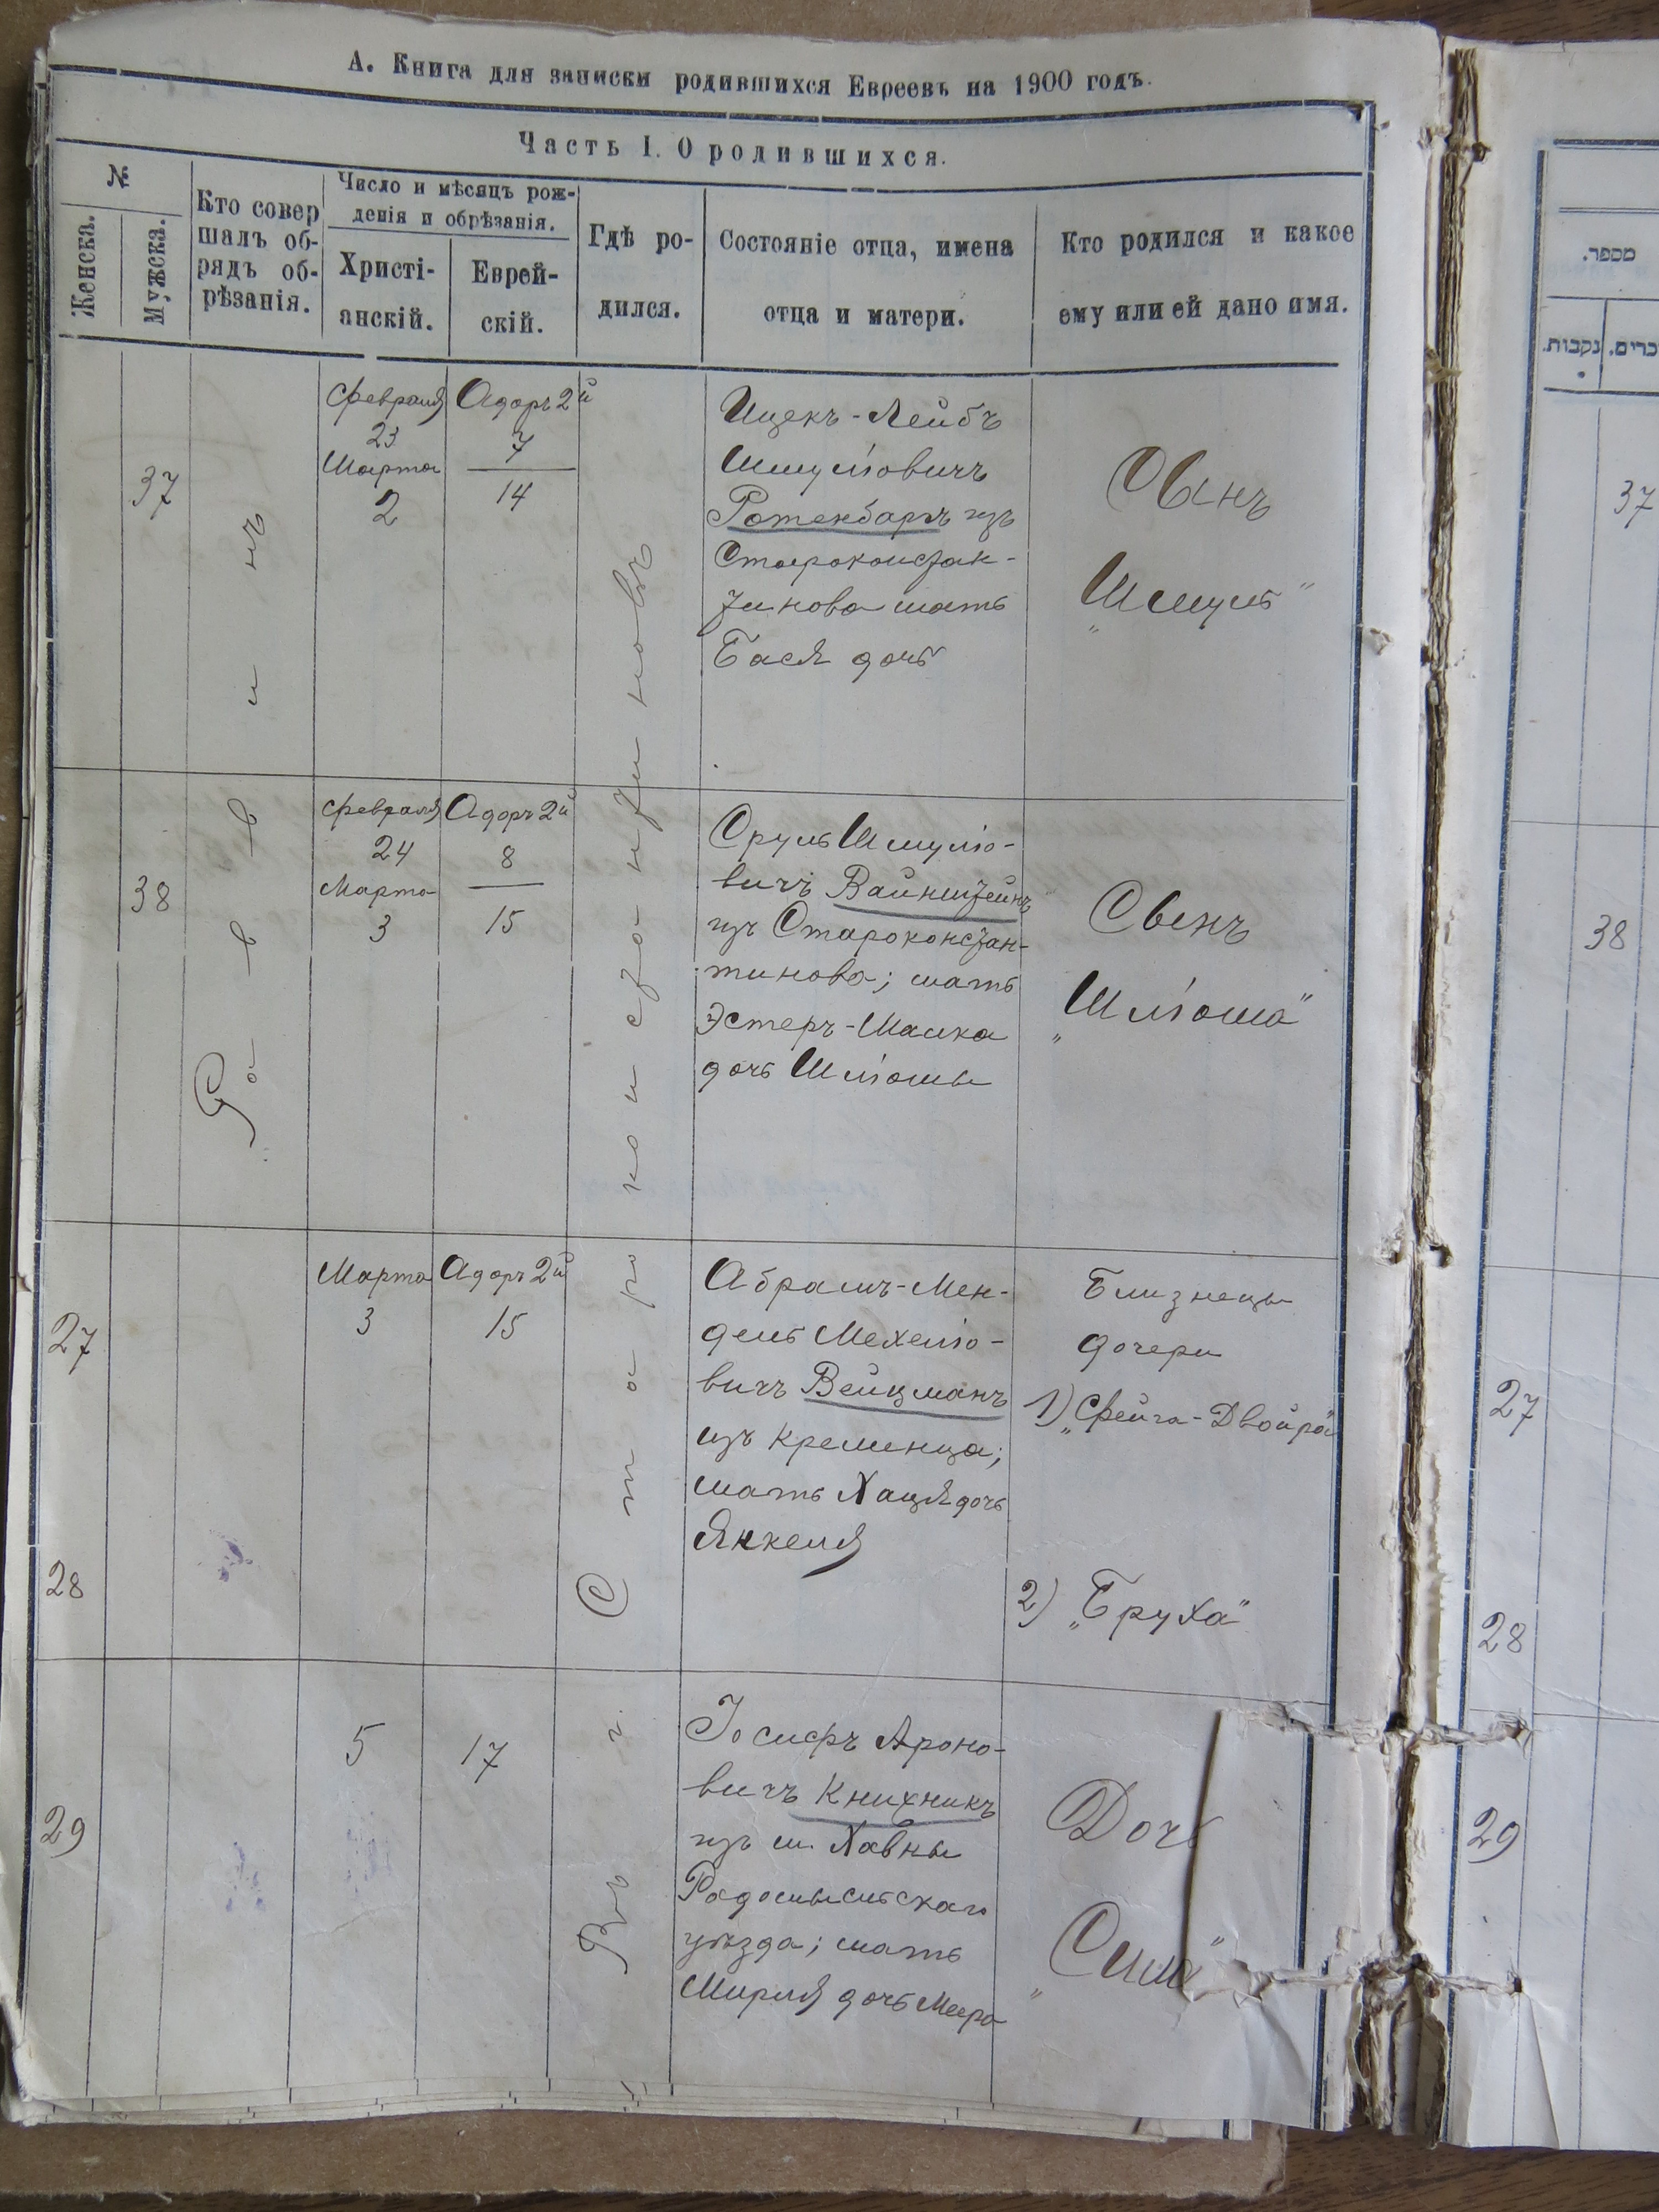 А. Книга для записки родившихся Евреевъ на 1900 годъ.
Часть I. О родившихся.
№
Женска.
Мужска.
Кто совер
шалъ об-
рядъ об-
рѣзанія.
Число и мѣсяцъ рож-
денія и обрѣзанія.
Христі-
анскій.
Еврей-
скій.
Гдѣ ро-
дился.
Состояніе отца, имена
отца и матери.
Кто родился и какое
ему или ей дано имя.
Раввинъ
Въ г. Староконстантиновъ
37
Февраля
23
Марта
2
Адоръ 2й
7
14
Ицекъ-Лейбъ
Шмуліовичъ
Ротенбаргъ изъ
Староконстан-
тинова мать
Бася дочь
Сынъ
"Шмуль"
38
Февраля
24
Марта
3
Адоръ 2й
8
15
Сруль Шмуліо-
вичъ Вайнштейнъ
изъ Староконстан-
тинова; мать
Эстеръ-Малка
дочь Шліомы
Сынъ
"Шліома"
27
Марта
3
Адоръ 2й
15
Абрамъ-Мен-
дель Мехеліо-
вичъ Вейцманъ
изъ Кременца;
мать Хация дочь
Янкеля
Близнецы
дочери
1) "Фейга-Двойра"
28
2) "Бруха"
29
5
17
Іосифъ Ароно-
вичъ Книжникъ
изъ м. Хавны
Радомысльскаго
уѣзда; мать
Мирля дочь Меера
Дочь
"Сима"
מספר.
זכרים.
נקבות.
37
38
27
28
29